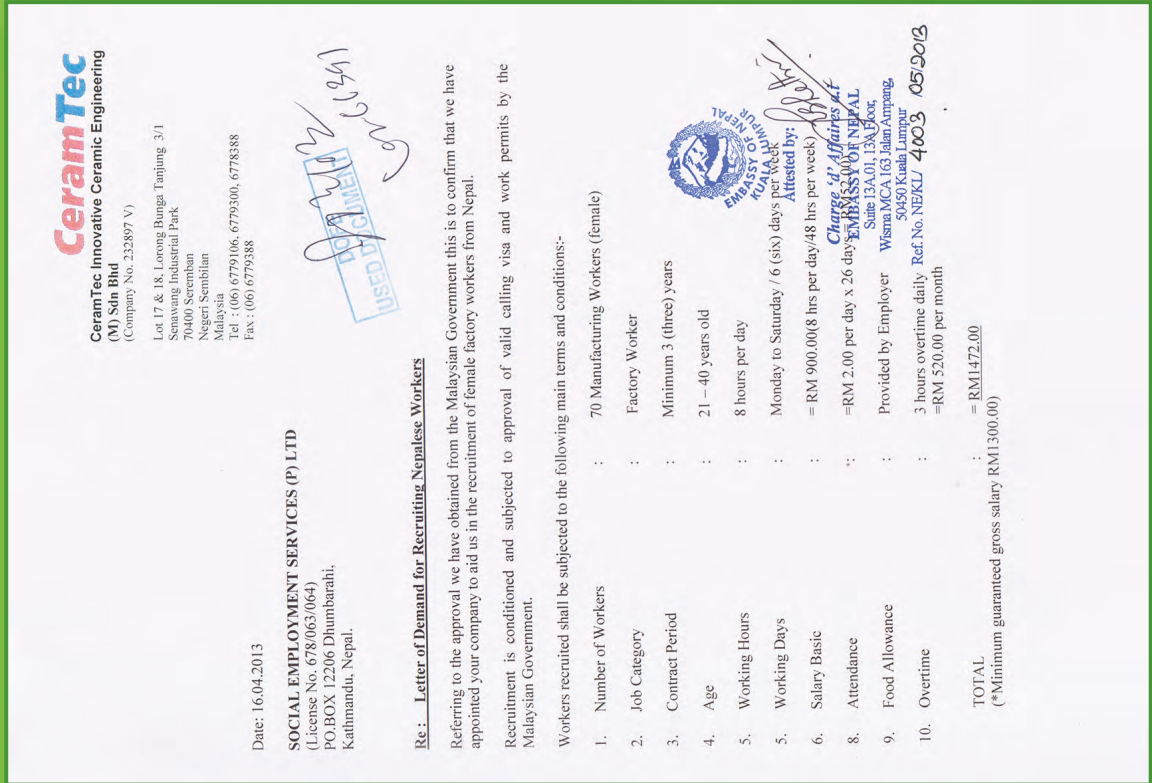 CeramTec
CeramTec Innovative Ceramic Engineering
(M) Sdn Bhd
(Company No. 232897 V)
Lot 17 & 18, Lorong Bunga Tanjung 3/1
Senawang Industrial Park
70400 Seremban
Negeri Sembilan
Malaysia
Tel : (06) 6779106, 6779300, 6778388
Fax : (06) 6779388
Date: 16.04.2013
SOCIAL EMPLOYMENT SERVICES (P) LTD
(License No. 678/063/064)
PO.BOX 12206 Dhumbarahi,
Kathmandu, Nepal.
USED DOCUMENT
Re : Letter of Demand for Recruiting Nepalese Workers
Referring to the approval we have obtained from the Malaysian Government this is to confirm that we have
appointed your company to aid us in the recruitment of female factory workers from Nepal.
Recruitment is conditioned and subjected to approval of valid calling visa and work permits by the
Malaysian Government.
Workers recruited shall be subjected to the following main terms and conditions:-
1. Number of Workers : 70 Manufacturing Workers (female)
2. Job Category : Factory Worker
3. Contract Period : Minimum 3 (three) years
4. Age : 21 – 40 years old
5. Working Hours : 8 hours per day
5. Working Days : Monday to Saturday / 6 (six) days per week
6. Salary Basic : = RM 900.00(8 hrs per day/48 hrs per week)
8. Attendance : =RM 2.00 per day x 26 days = RM52.00
9. Food Allowance : Provided by Employer
10. Overtime : 3 hours overtime daily
=RM 520.00 per month
TOTAL : = RM1472.00
(*Minimum guaranteed gross salary RM1300.00)
EMBASSY OF NEPAL
KUALA LUMPUR
Attested by:
Charge 'd' Affaires a.i
EMBASSY OF NEPAL
Suite 13A.01, 13A Floor,
Wisma MCA 163 Jalan Ampang,
50450 Kuala Lumpur
Ref. No. NE/KL/ 4003 /05/2013